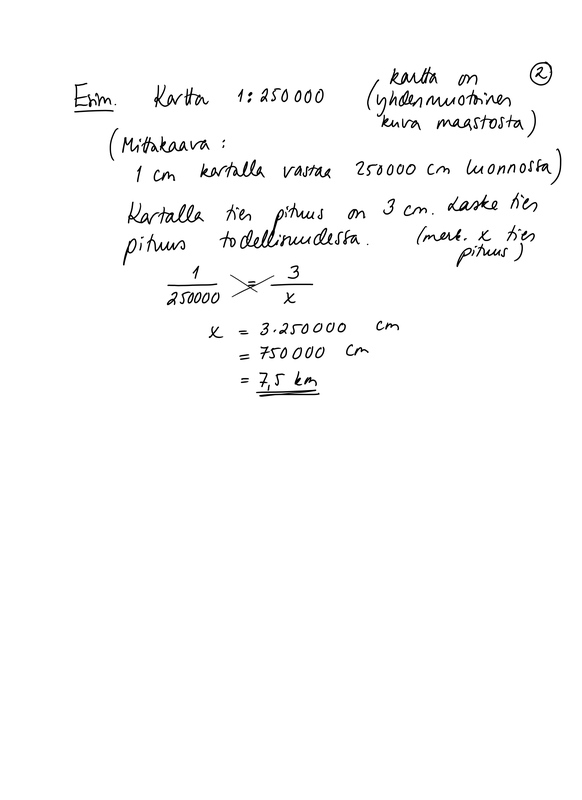 ②
Esim. Kartta 1:250 000 (kartta on
yhdenmuotoinen
kuva maastosta)
(Mittakaava:
1 cm kartalla vastaa 250000 cm luonnossa)
Kartalla tien pituus on 3 cm. Laske tien
pituus todellisuudessa. (merk. x tien
pituus)
1/250000 = 3/x
x = 3·250000 cm
= 750000 cm
= 7,5 km